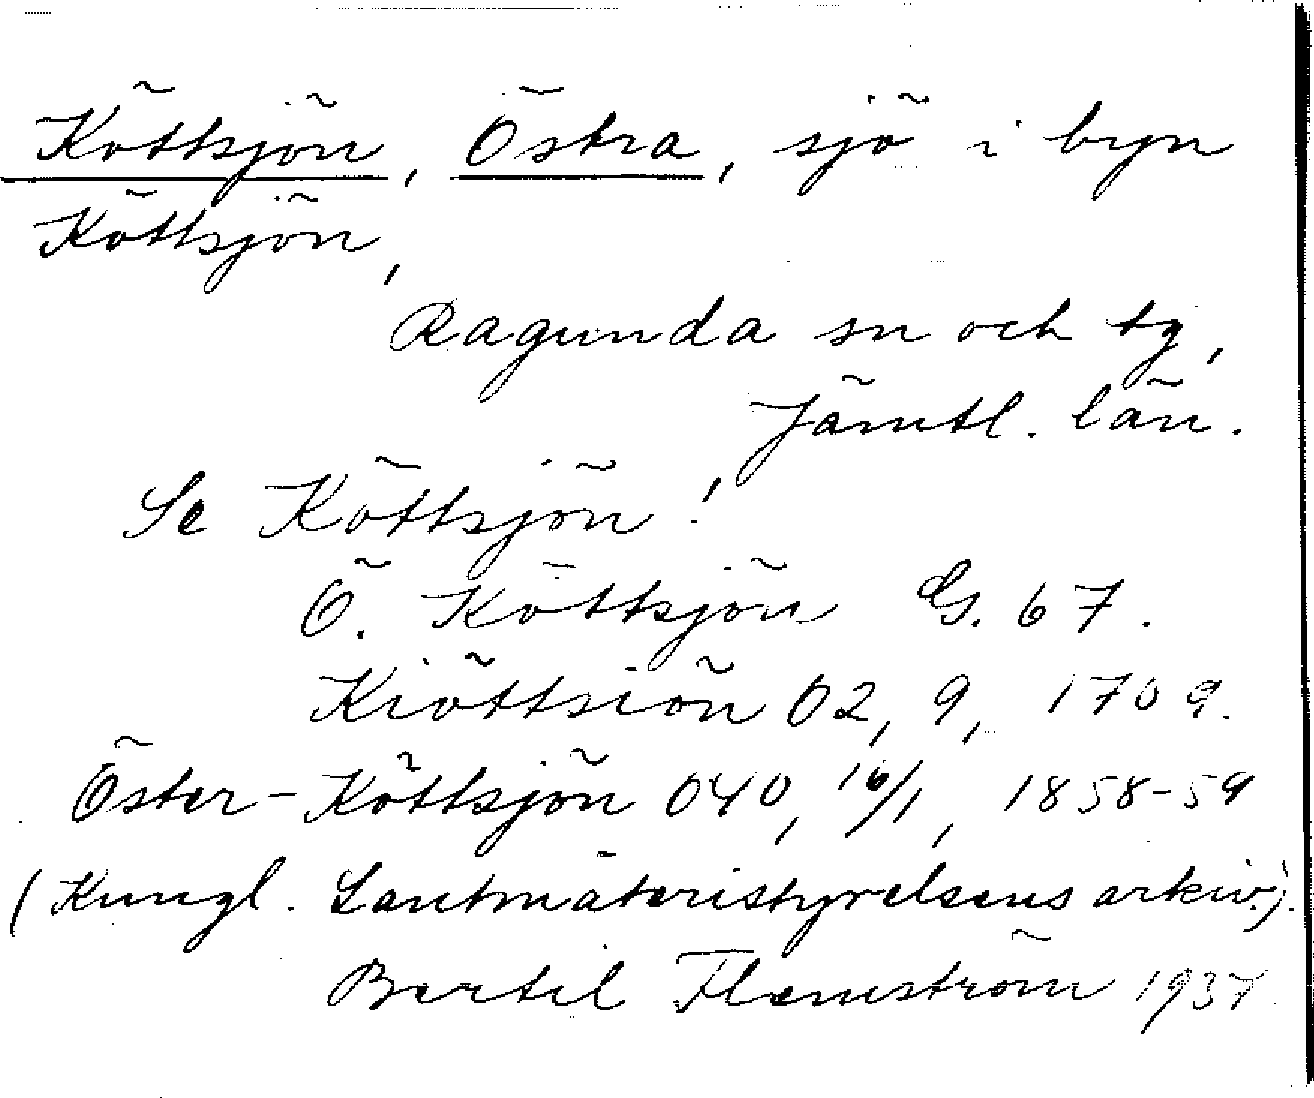 Köttsjön, Östra, sjö i byn
Köttsjön,
Ragunda sn och tg,
Jämtl. län.
Se Köttsjön!
Ö. Köttsjön G. 67.
Kiöttsiön 02, 9, 1709.
Öster-Köttsjön 040, 16/1, 1858-59
(Kungl. Lantmäteristyrelsens arkiv.).
Bertil Flemström 1937